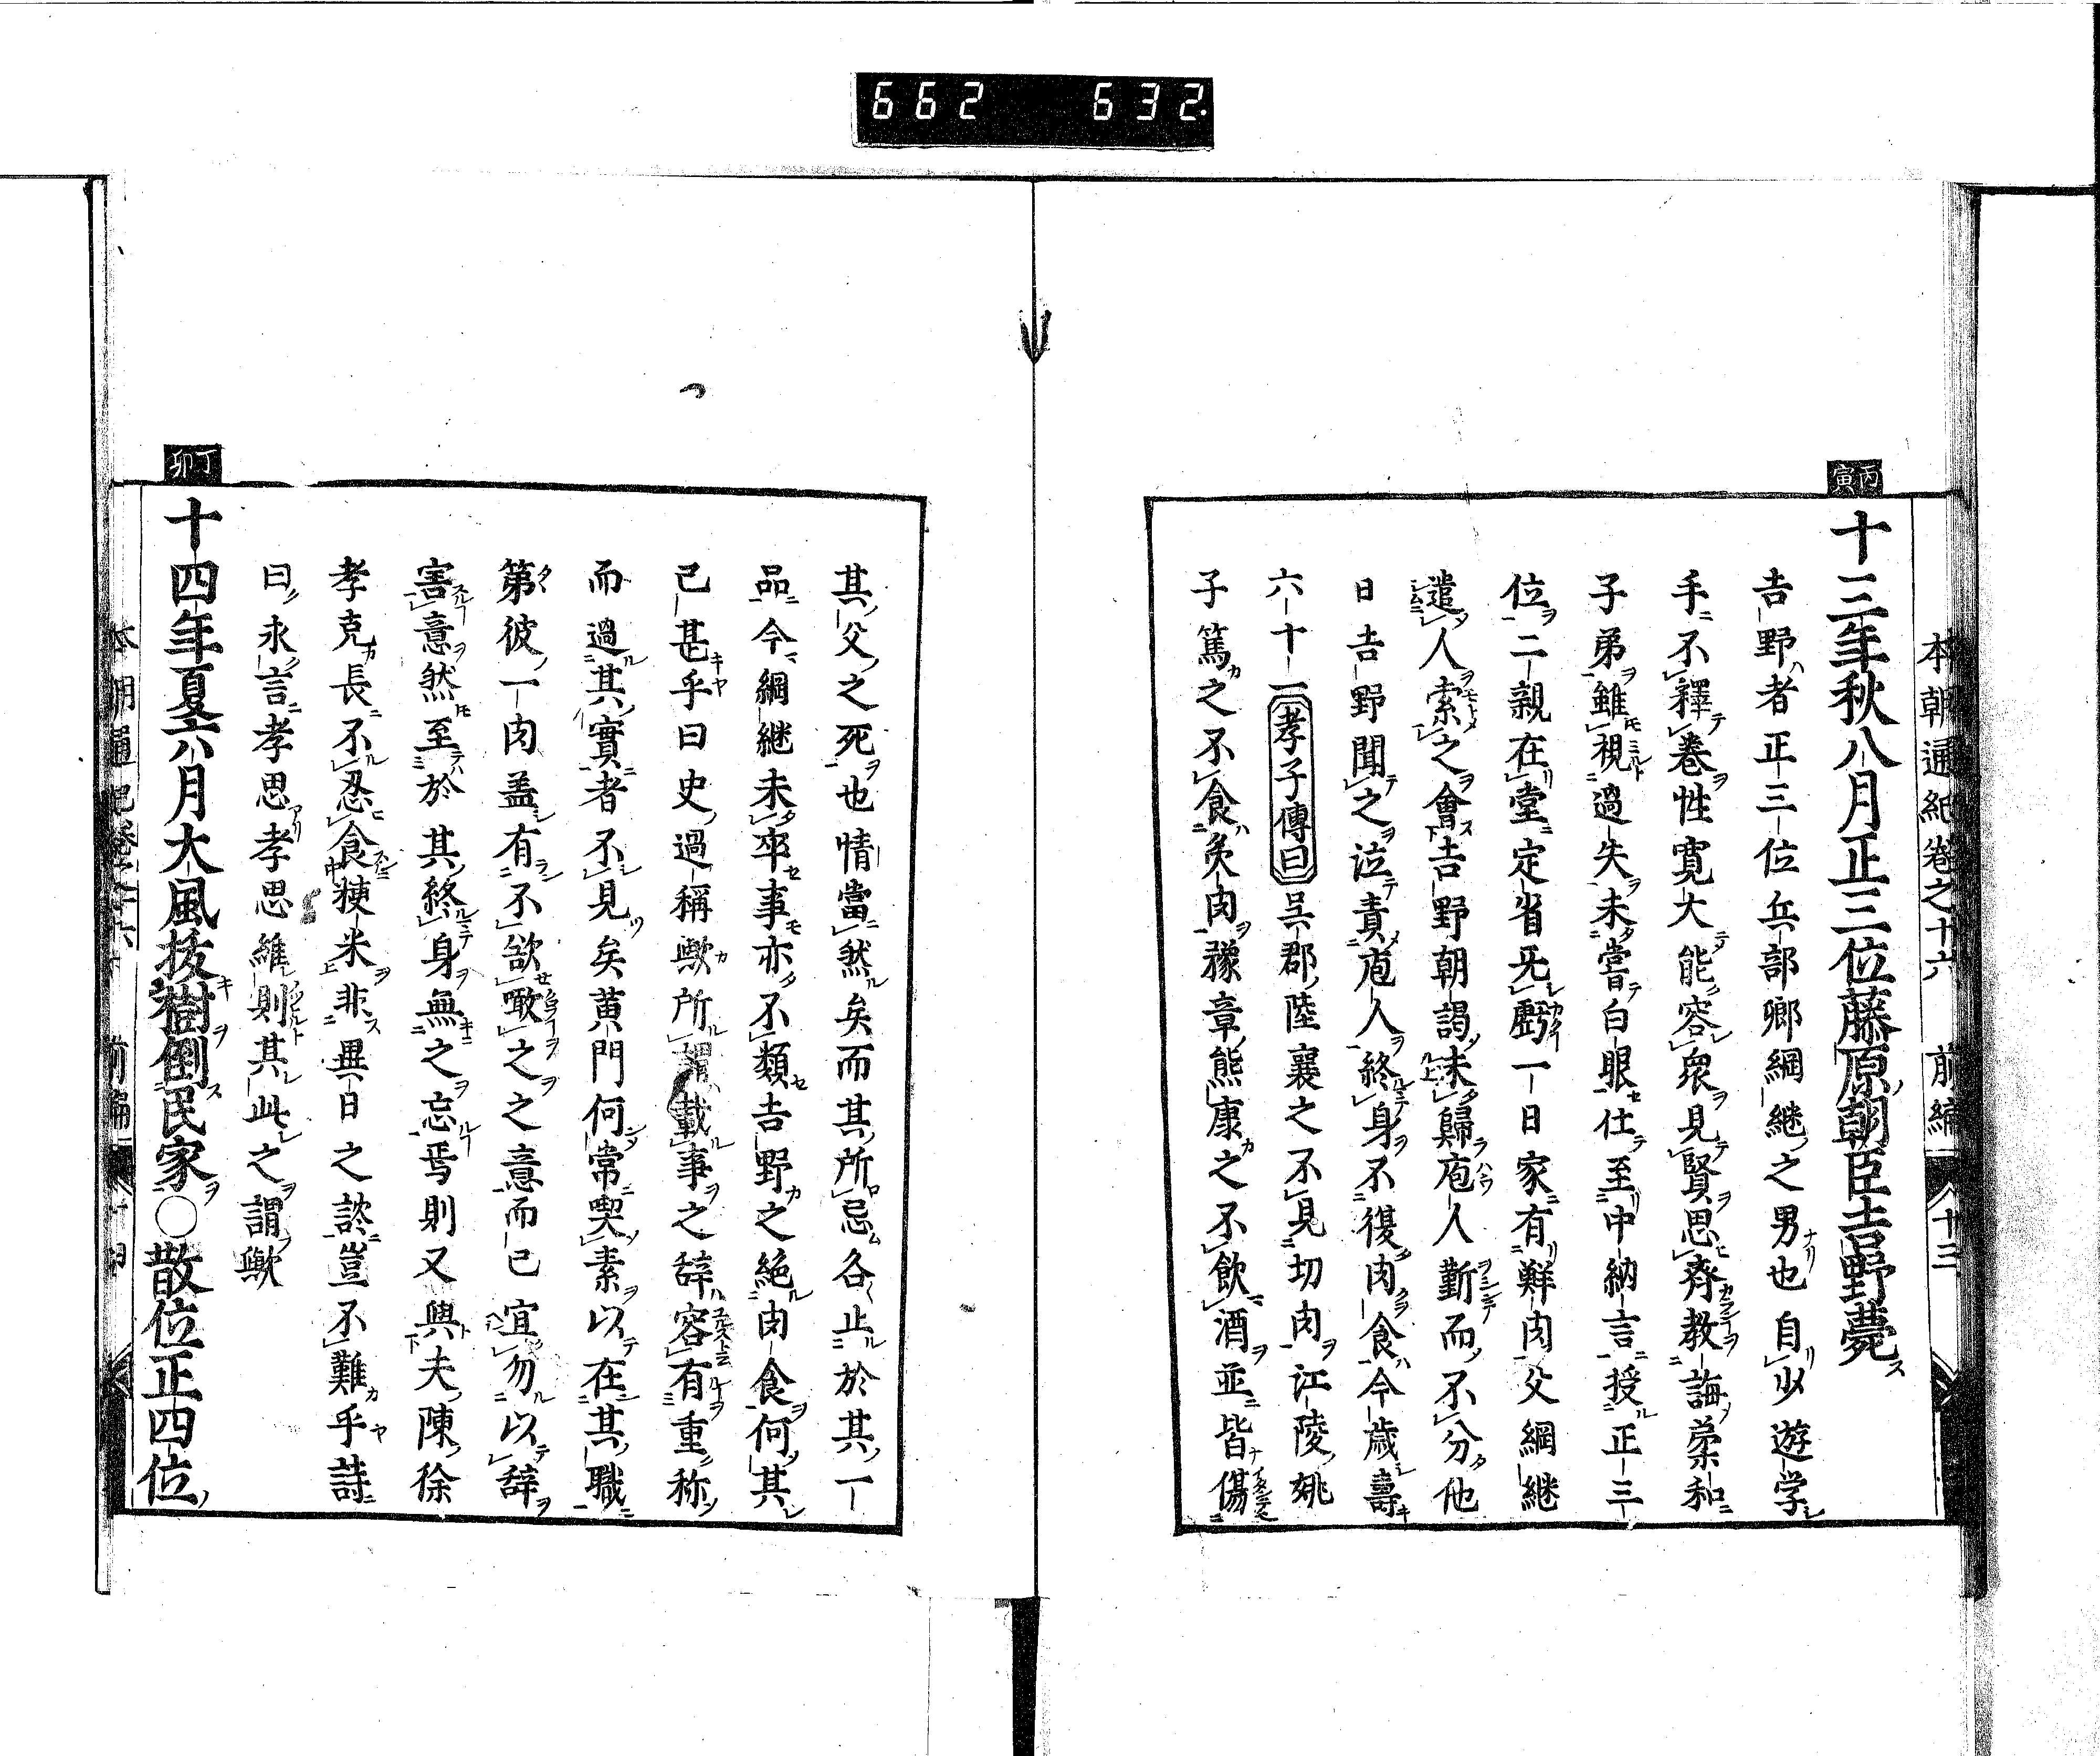 662 632.
本朝通紀卷之十六 前編 十三
丙寅
十三年秋八月正三位藤原朝臣吉野薨
吉野者正三位兵部卿綱繼之男也自少遊学
手不釋卷性寬大能容衆見賢思齊教誨柔和
子弟雖視過失未嘗白眼仕至中納言授正三
位二親在堂定省无虧一日家有鮮肉父綱継
遣人索之會吉野朝謁未歸庖人靳而不分他
日吉野聞之泣責庖人終身不復肉食今歲壽
六十一孝子傳曰吳郡陸襄之不見切肉江陵姚
子篤之不食魚肉豫章熊康之不飲酒並皆傷
其父之死也情當然矣而其所忌各止於其一
品今綱継未卒事亦不類吉野之絶肉食何其
已甚乎曰史過稱歟所謂載事之辞容有重称
而過其實者不見矣黄門何常喫素以在其職
第彼一肉盖有不欲噉之之意而已宜勿以辞
害意然至於其終身無之忘焉則又與夫陳徐
孝克長不忍食粳米非異日之談豈不難乎詩
曰永言孝思孝思維則其此之謂歟
丁卯
十四年夏六月大風抜樹倒民家○散位正四位
本朝通紀卷之十六 前編